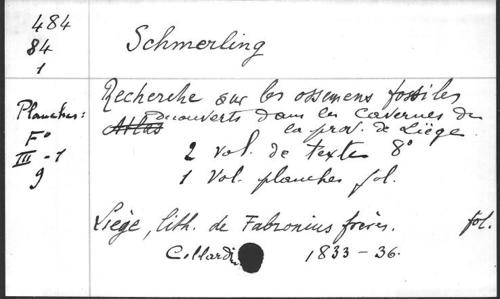 484
84
1
Schmerling
Planches:
F°
III - 1
9
Recherche sur les ossemens fossiles
Atlas découverts dans les cavernes de
la prov. de Liège.
2 vol. de textes 8°
1 vol. planches fol.
Liège, lith. de Fabronius frères. fol.
Collardin 1833-36.